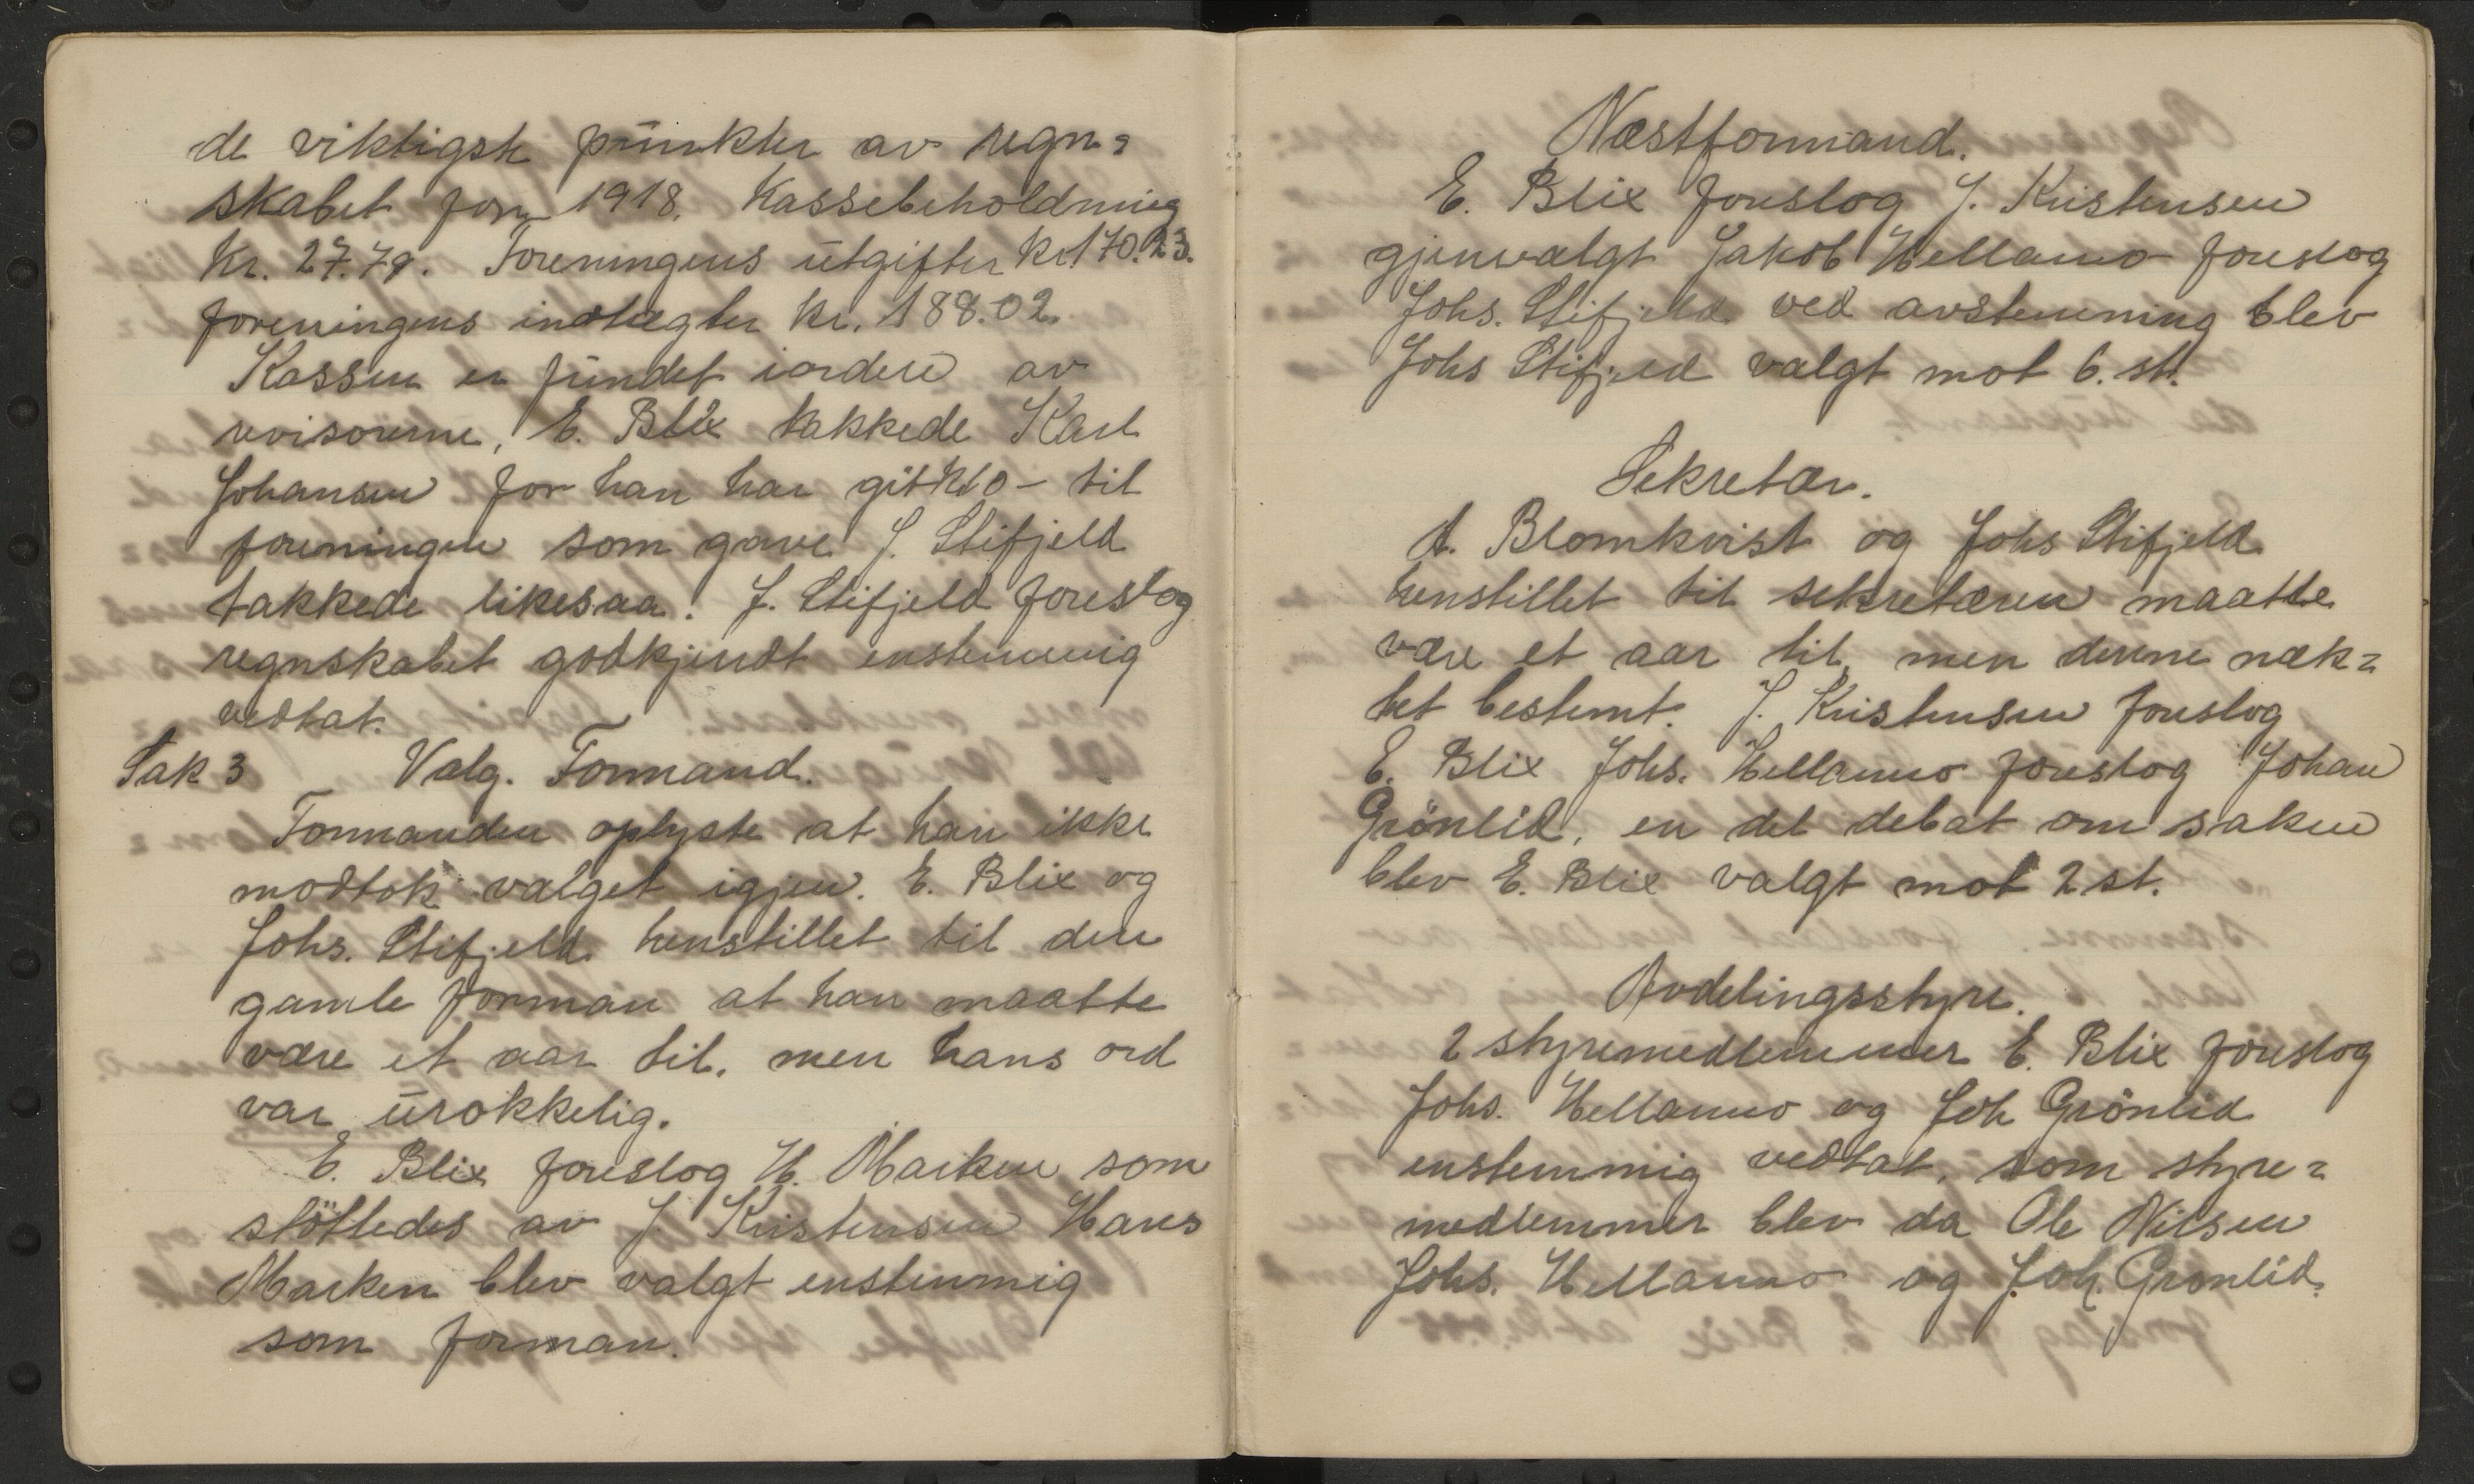 de viktigste punkter av regn=
skabet for 1918. Kassebeholdning
Kr. 27.79. Foreningens utgifter Kr. 170.23.
foreningens indtægter kr. 188.02.
Kassen er fundet iorden av
revisorerne, E. Blix takkede Karl
Johansen for han har git kr 10 - til
foreningen som gave J. Stifjeld
takkede likesaa. J. Stifjeld foreslog
regnskabet godkjendt enstemmig
vedtat.
Sak 3 Valg. Formand.
Formanden oplyste at han ikke
modtok valget igjen. E. Blix og
Johs. Stifjeld henstillet til den
gamle forman at han maatte
være et aar til. men hans ord
var urokkelig.
E. Blix foreslog H. Marken som
støttedes av J. Kristensen Hans
Marken blev valgt enstemmig
som forman.
Næstformand.
E. Blix foreslog J. Kristensen
gjenvalgt Jakob Hellamo foreslog
Johs. Stifjeld ved avstemning blev
Johs Stifjeld valgt mot 6. st.
Sekretær.
A. Blomkvist og Johs Stifjeld
henstillet til sekretæren maatte
være et aar til, men denne næk=
tet bestemt. J. Kristensen foreslog
E. Blix Johs. Hellamo foreslog Johan
Grönlid, en del debat om saken
blev E. Blix valgt mot 2 st.
Avdelingsstyre.
2 styremedlemmer E. Blix foreslog
Johs. Hellamo og Joh Grönlid
enstemmig vedtat, som styre=
medlemmer blev da Ole Nilsen
Johs. Hellamo og Joh. Gronlid.